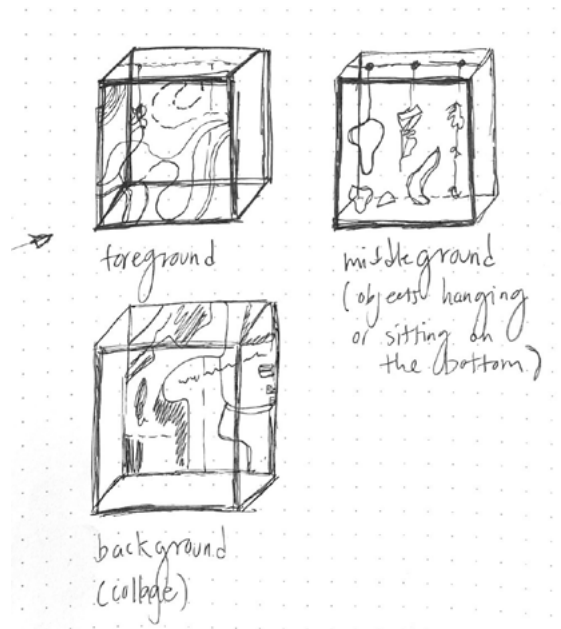 foreground
middleground
(objects hanging
or sitting on
the bottom)
background
(collage)